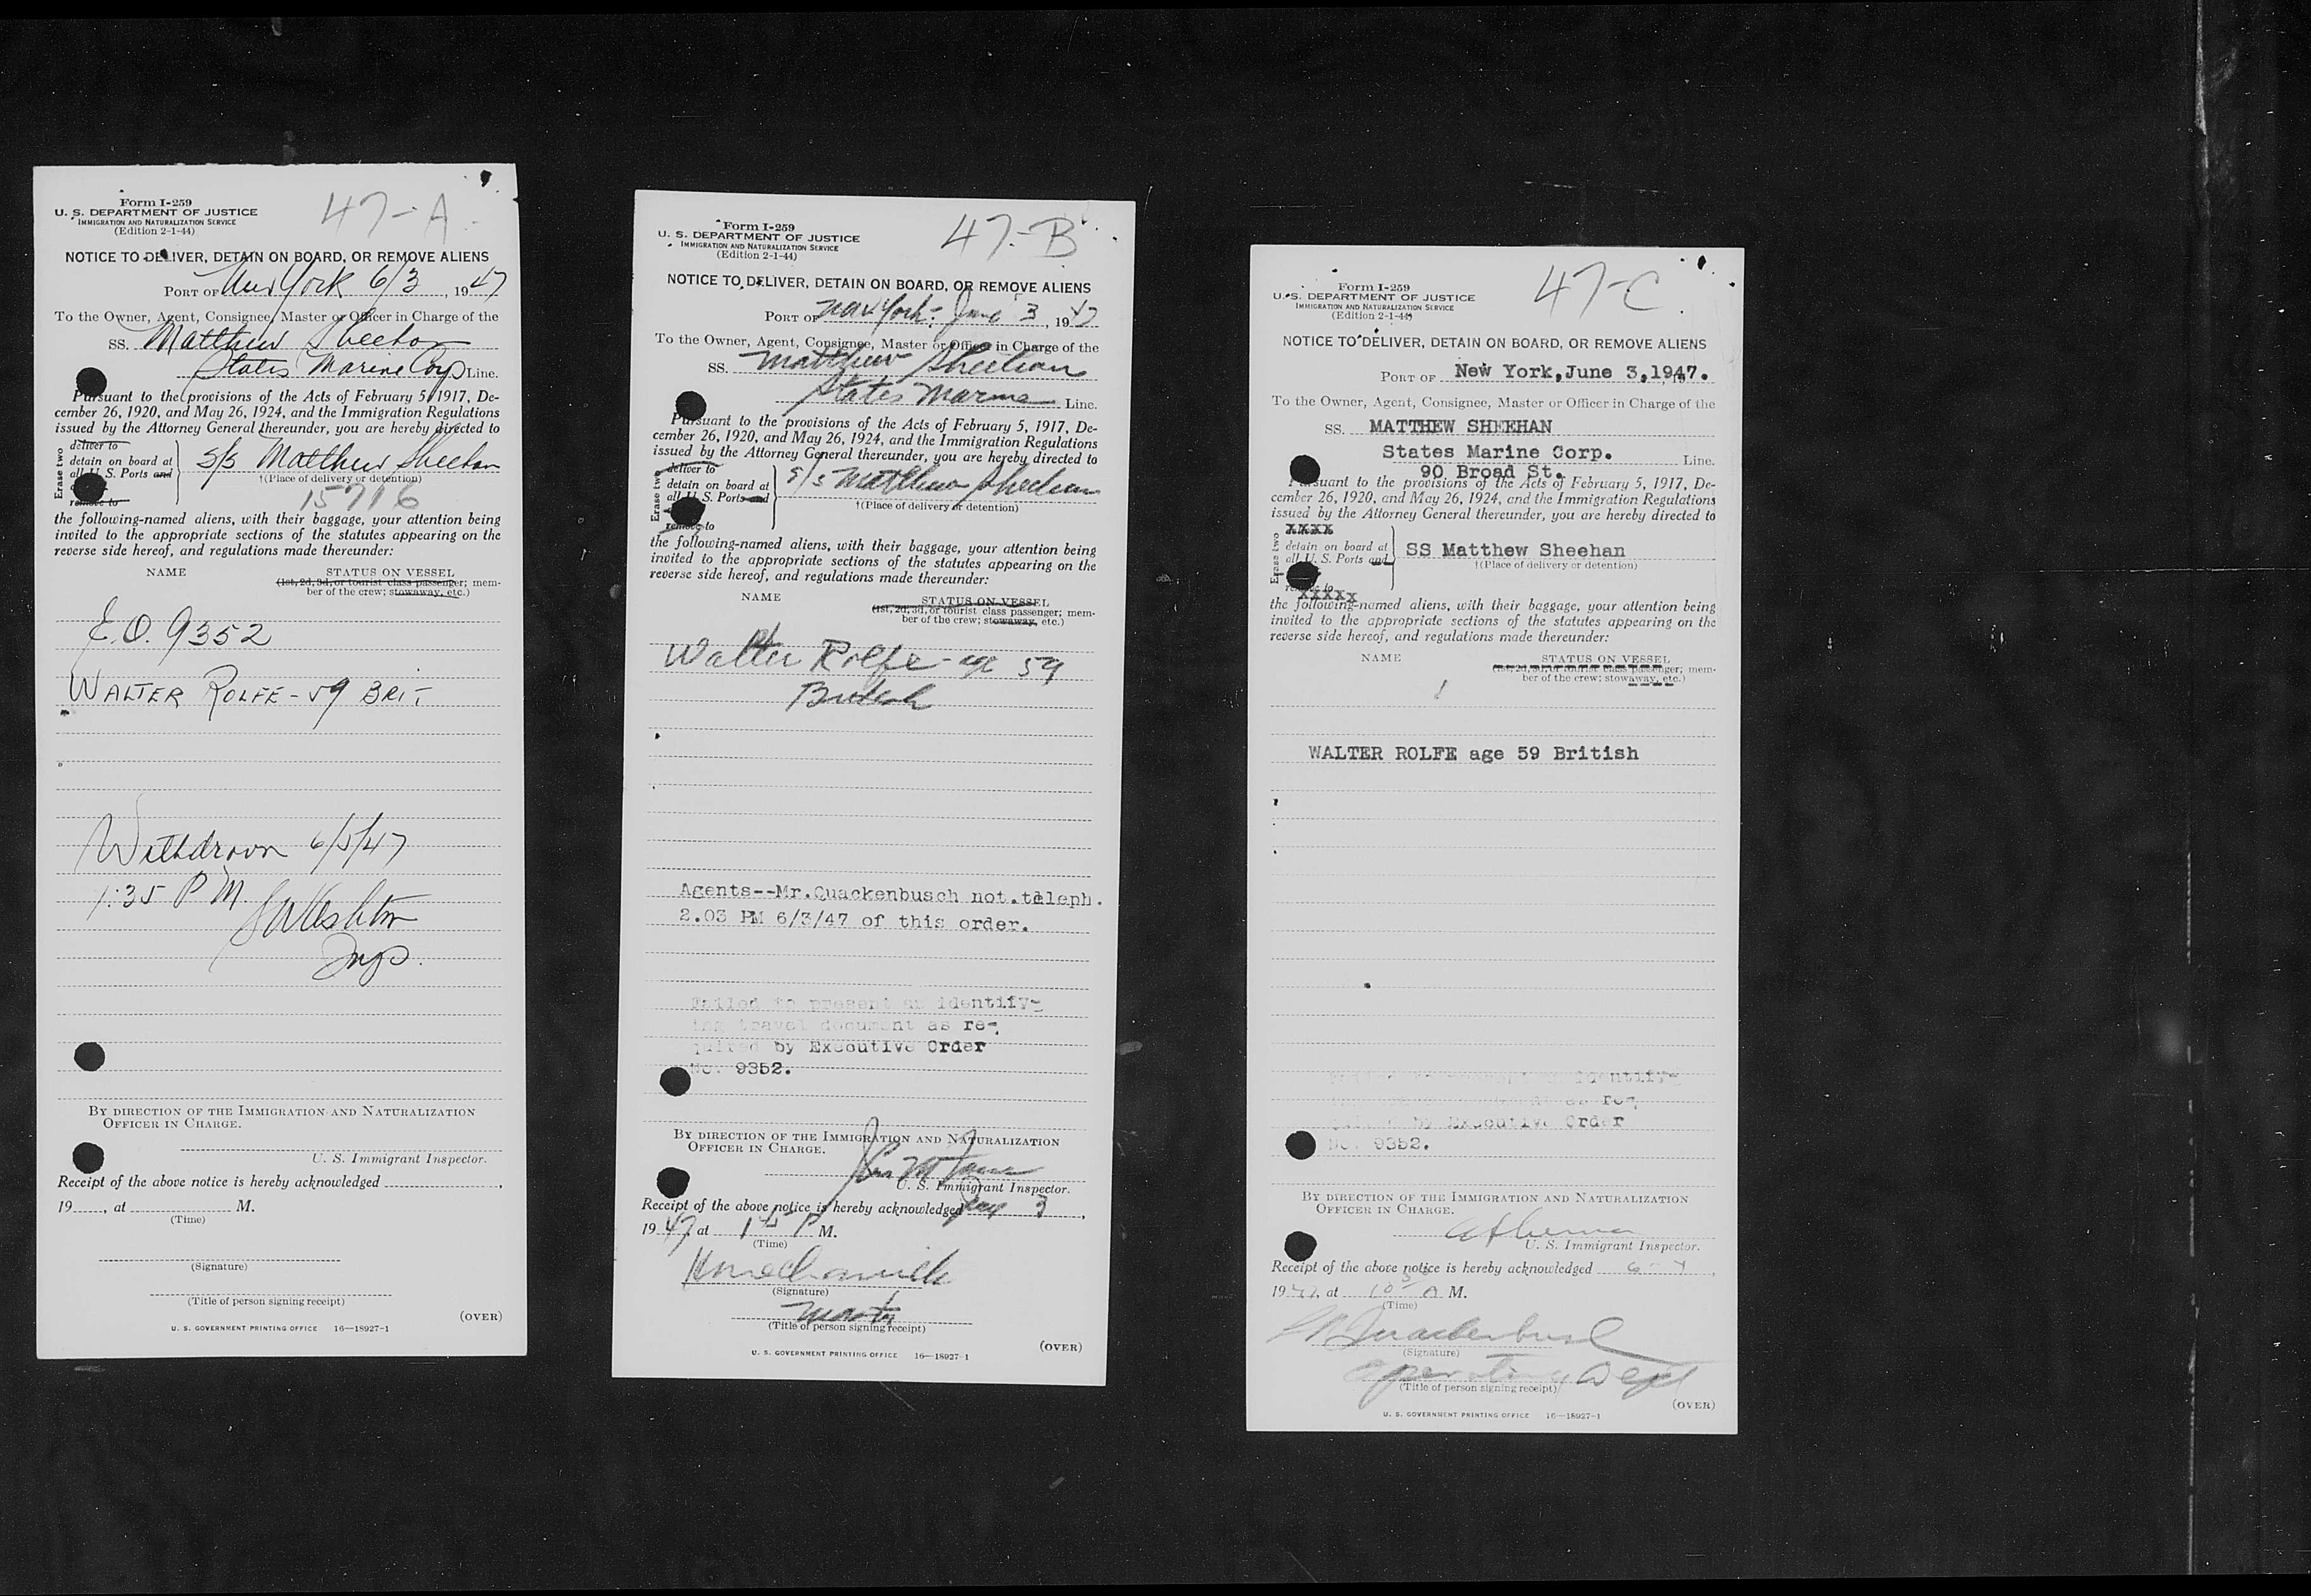 Form I-259
U. S. DEPARTMENT OF JUSTICE
IMMIGRATION AND NATURALIZATION SERVICE
(Edition 2-1-44)
47-A
NOTICE TO DELIVER, DETAIN ON BOARD, OR REMOVE ALIENS
PORT OF New York 6/3, 1947
To the Owner, Agent, Consignee, Master or Officer in Charge of the
SS. Matthew Sheehan
States Marine Corp Line.
Pursuant to the provisions of the Acts of February 5, 1917, De-
cember 26, 1920, and May 26, 1924, and the Immigration Regulations
issued by the Attorney General thereunder, you are hereby directed to
Erase two
deliver to
detain on board at
all U. S. Ports and
remove to
S/S Matthew Sheehan
†(Place of delivery or detention)
15716
the following-named aliens, with their baggage, your attention being
invited to the appropriate sections of the statutes appearing on the
reverse side hereof, and regulations made thereunder:
NAME STATUS ON VESSEL
(1st, 2d, 3d, or tourist class passenger; mem-
ber of the crew; stowaway, etc.)
E.O. 9352
WALTER ROLFE - 59 BRIT
Withdrawn 6/5/47
1:35 P M.
Insp.
BY DIRECTION OF THE IMMIGRATION AND NATURALIZATION
OFFICER IN CHARGE.
U. S. Immigrant Inspector.
Receipt of the above notice is hereby acknowledged
19, at M.
(Time)
(Signature)
(Title of person signing receipt)
(OVER)
U. S. GOVERNMENT PRINTING OFFICE 16—18927-1
Form I-259
U. S. DEPARTMENT OF JUSTICE
IMMIGRATION AND NATURALIZATION SERVICE
(Edition 2-1-44)
47-B
NOTICE TO DELIVER, DETAIN ON BOARD, OR REMOVE ALIENS
PORT OF New York: June 3, 1947
To the Owner, Agent, Consignee, Master or Officer in Charge of the
SS. Matthew Sheehan
States Marine Line.
Pursuant to the provisions of the Acts of February 5, 1917, De-
cember 26, 1920, and May 26, 1924, and the Immigration Regulations
issued by the Attorney General thereunder, you are hereby directed to
Erase two
deliver to
detain on board at
all U. S. Ports and
remove to
S/S Matthew Sheehan
†(Place of delivery or detention)
the following-named aliens, with their baggage, your attention being
invited to the appropriate sections of the statutes appearing on the
reverse side hereof, and regulations made thereunder:
NAME STATUS ON VESSEL
(1st, 2d, 3d, or tourist class passenger; mem-
ber of the crew; stowaway, etc.)
Walter Rolfe - age 59
British
Agents--Mr.Quackenbusch not.teleph.
2.03 PM 6/3/47 of this order.
Failed to present an identify-
ing travel document as re-
quired by Executive Order
No. 9352.
BY DIRECTION OF THE IMMIGRATION AND NATURALIZATION
OFFICER IN CHARGE.
U. S. Immigrant Inspector.
Receipt of the above notice is hereby acknowledged June 3,
1947 at P M.
(Time)
(Signature)
Master
(Title of person signing receipt)
(OVER)
U. S. GOVERNMENT PRINTING OFFICE 16—18927-1
Form I-259
U. S. DEPARTMENT OF JUSTICE
IMMIGRATION AND NATURALIZATION SERVICE
(Edition 2-1-44)
47-C
NOTICE TO DELIVER, DETAIN ON BOARD, OR REMOVE ALIENS
PORT OF New York, June 3, 1947.
To the Owner, Agent, Consignee, Master or Officer in Charge of the
SS. MATTHEW SHEEHAN
States Marine Corp. Line.
90 Broad St.
Pursuant to the provisions of the Acts of February 5, 1917, De-
cember 26, 1920, and May 26, 1924, and the Immigration Regulations
issued by the Attorney General thereunder, you are hereby directed to
Erase two
xxxx
detain on board at
all U. S. Ports and
remove to
xxxxx
SS Matthew Sheehan
†(Place of delivery or detention)
the following-named aliens, with their baggage, your attention being
invited to the appropriate sections of the statutes appearing on the
reverse side hereof, and regulations made thereunder:
NAME STATUS ON VESSEL
(1st, 2d, 3d, or tourist class passenger; mem-
ber of the crew; stowaway, etc.)
WALTER ROLFE age 59 British
identify-
as re-
quired by Executive Order
No. 9352.
BY DIRECTION OF THE IMMIGRATION AND NATURALIZATION
OFFICER IN CHARGE.
U. S. Immigrant Inspector.
Receipt of the above notice is hereby acknowledged 6-4,
1947, at 10 A M.
(Time)
Quackenbush
(Signature)
Operating Dept
(Title of person signing receipt)
(OVER)
U. S. GOVERNMENT PRINTING OFFICE 16—18927-1